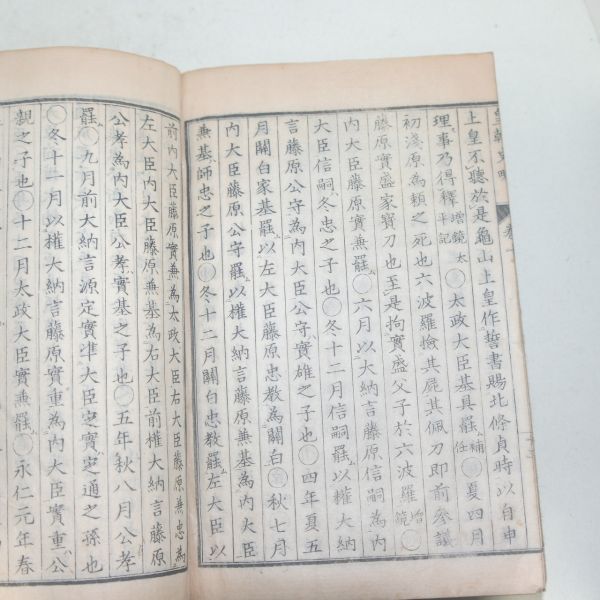 皇朝史略
上皇不聽於是龜山上皇作誓書賜北條貞時以自申
理事乃得釋增鏡太平記○太政大臣基具罷補任○夏四月
初淺原為頼之死也六波羅檢其屍其佩刀即前參議
藤原實盛家寶刀也至是拘實盛父子於六波羅增鏡○
內大臣藤原實兼罷○六月以大納言藤原信嗣為內
大臣信嗣冬忠之子也○冬十二月信嗣罷以權大納
言藤原公守為內大臣公守實雄之子也○四年夏五
月關白家基罷以左大臣忠教為關白○秋七月
內大臣藤原公守罷以權大納言藤原兼基為內大臣
兼基師忠之子也○冬十二月關白忠教罷左大臣以
前內大臣藤原實兼為太政大臣右大臣藤原兼忠為
左大臣內大臣藤原兼基為右大臣前權大納言藤原
公孝為內大臣公孝實基之子也○五年秋八月公孝
罷○九月前大納言源定實準大臣定實通之孫也
○冬十一月以權大納言藤原實重為內大臣實重公
親之子也○十二月太政大臣實兼罷○永仁元年春